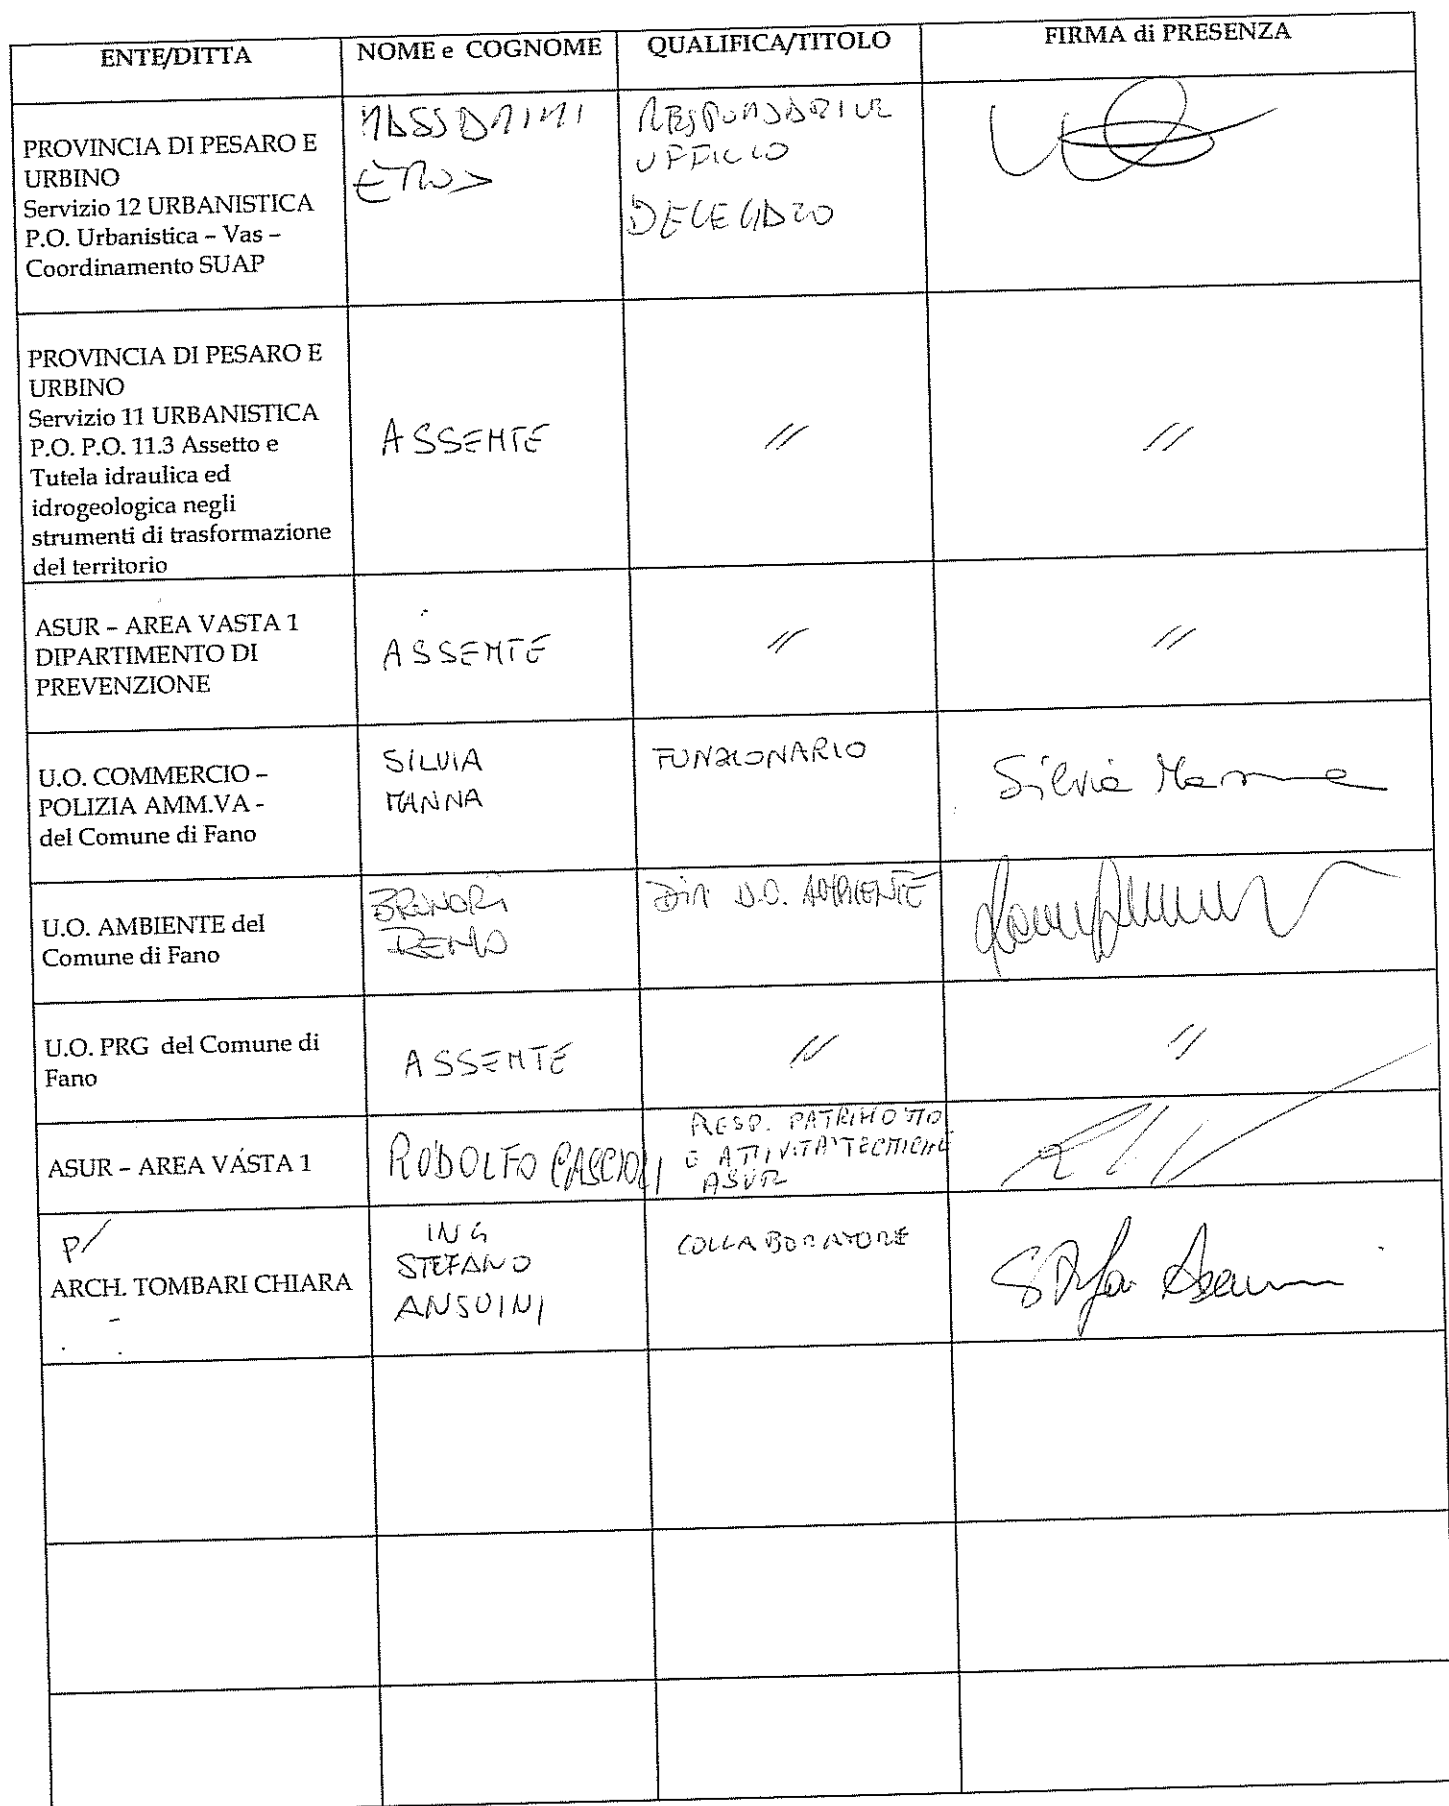 ENTE/DITTA
NOME e COGNOME
QUALIFICA/TITOLO
FIRMA di PRESENZA
PROVINCIA DI PESARO E
URBINO
Servizio 12 URBANISTICA
P.O. Urbanistica – Vas –
Coordinamento SUAP
MASSARINI
RESPONSABILE
UFFICIO
DELEGATO
PROVINCIA DI PESARO E
URBINO
Servizio 11 URBANISTICA
P.O. P.O. 11.3 Assetto e
Tutela idraulica ed
idrogeologica negli
strumenti di trasformazione
del territorio
ASSENTE
//
//
ASUR – AREA VASTA 1
DIPARTIMENTO DI
PREVENZIONE
ASSENTE
//
//
U.O. COMMERCIO –
POLIZIA AMM.VA -
del Comune di Fano
SILVIA
MANNA
FUNZIONARIO
Silvia Manna
U.O. AMBIENTE del
Comune di Fano
BRUNORI
REMO
DIR U.O. AMBIENTE
U.O. PRG del Comune di
Fano
ASSENTE
//
//
ASUR – AREA VASTA 1
RODOLFO CASCIOLI
RESP. PATRIMONIO
E ATTIVITA' TECNICHE
ASUR
P/
ARCH. TOMBARI CHIARA
ING
STEFANO
ANSUINI
COLLABORATORE